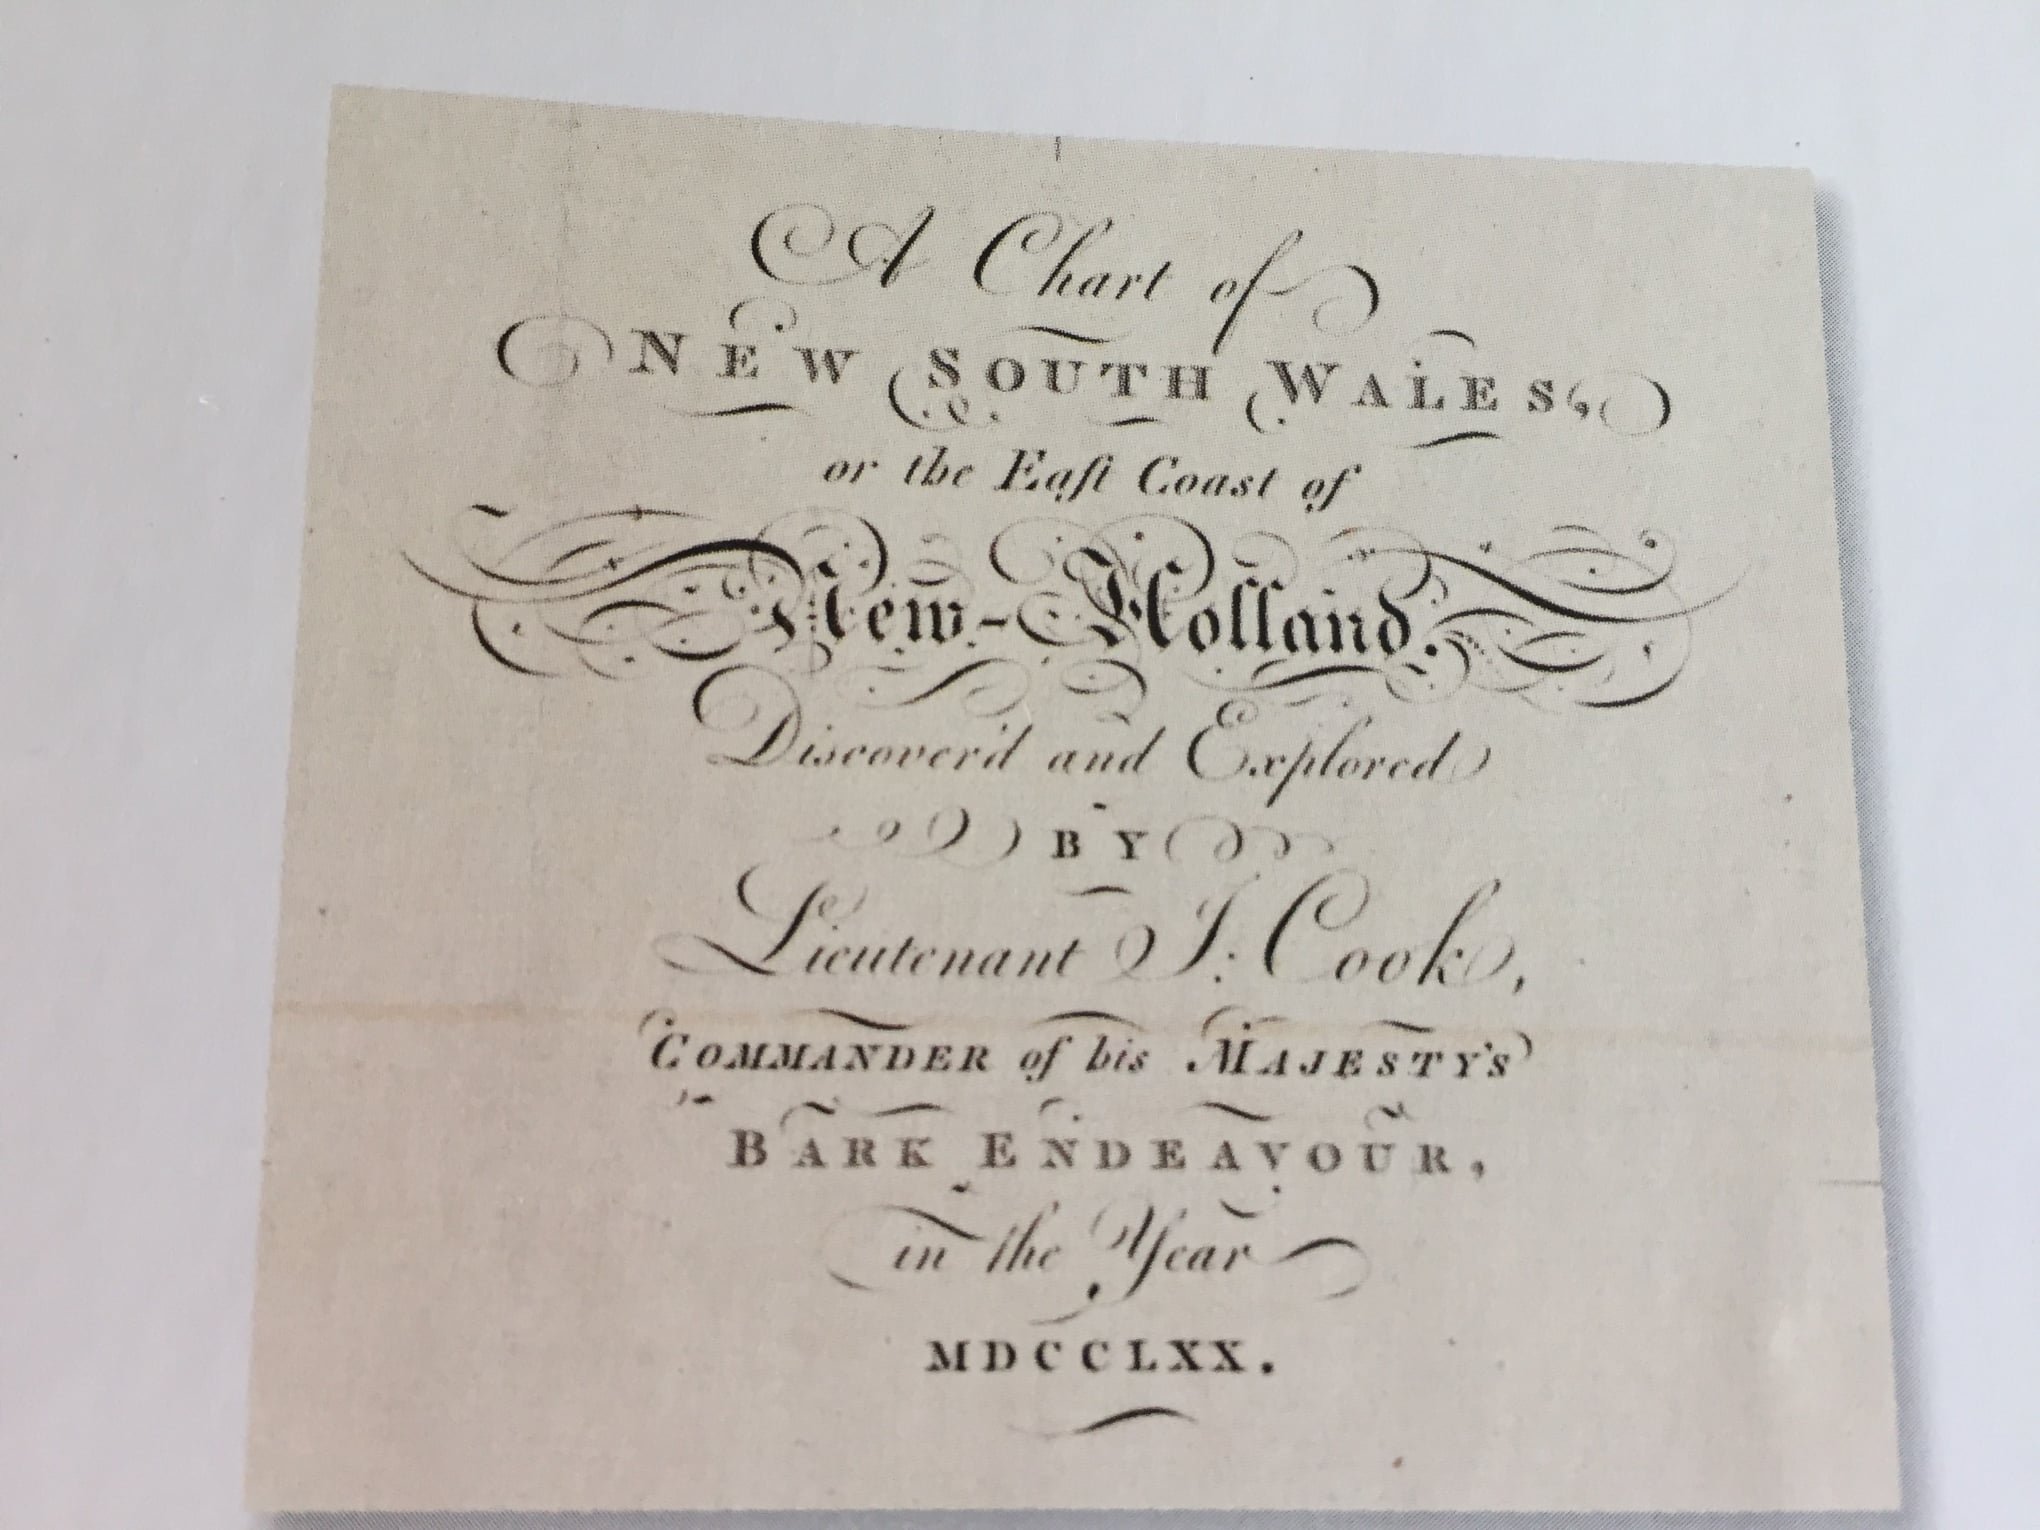 A Chart of
NEW SOUTH WALES,
or the Eaſt Coast of
New-Holland.
Discover'd and Explored
BY
Lieutenant J: Cook,
COMMANDER of his MAJESTY'S
BARK ENDEAVOUR,
in the Year
MDCCLXX.